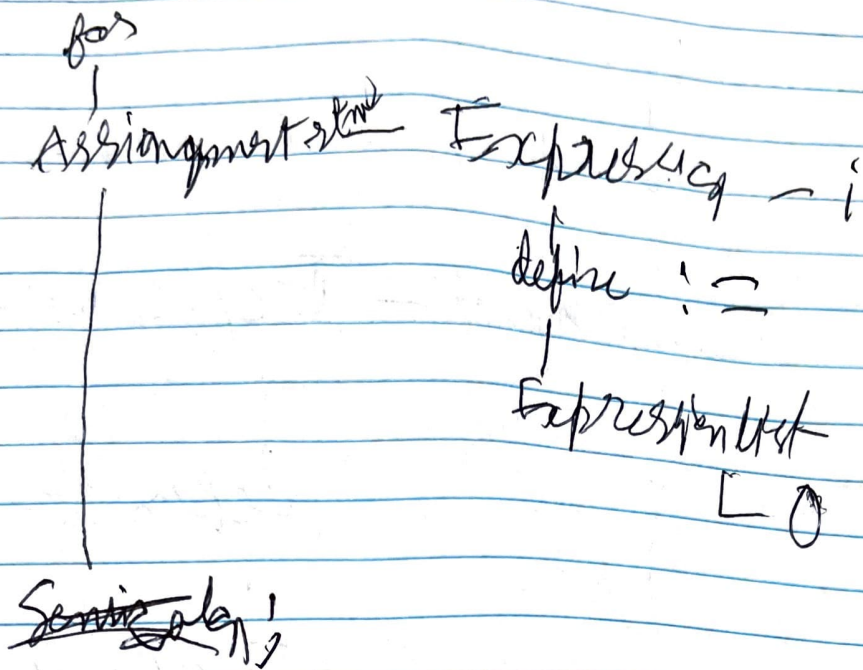 for
Assiongment stmt Expression - i
define :=
Expression list
0
;